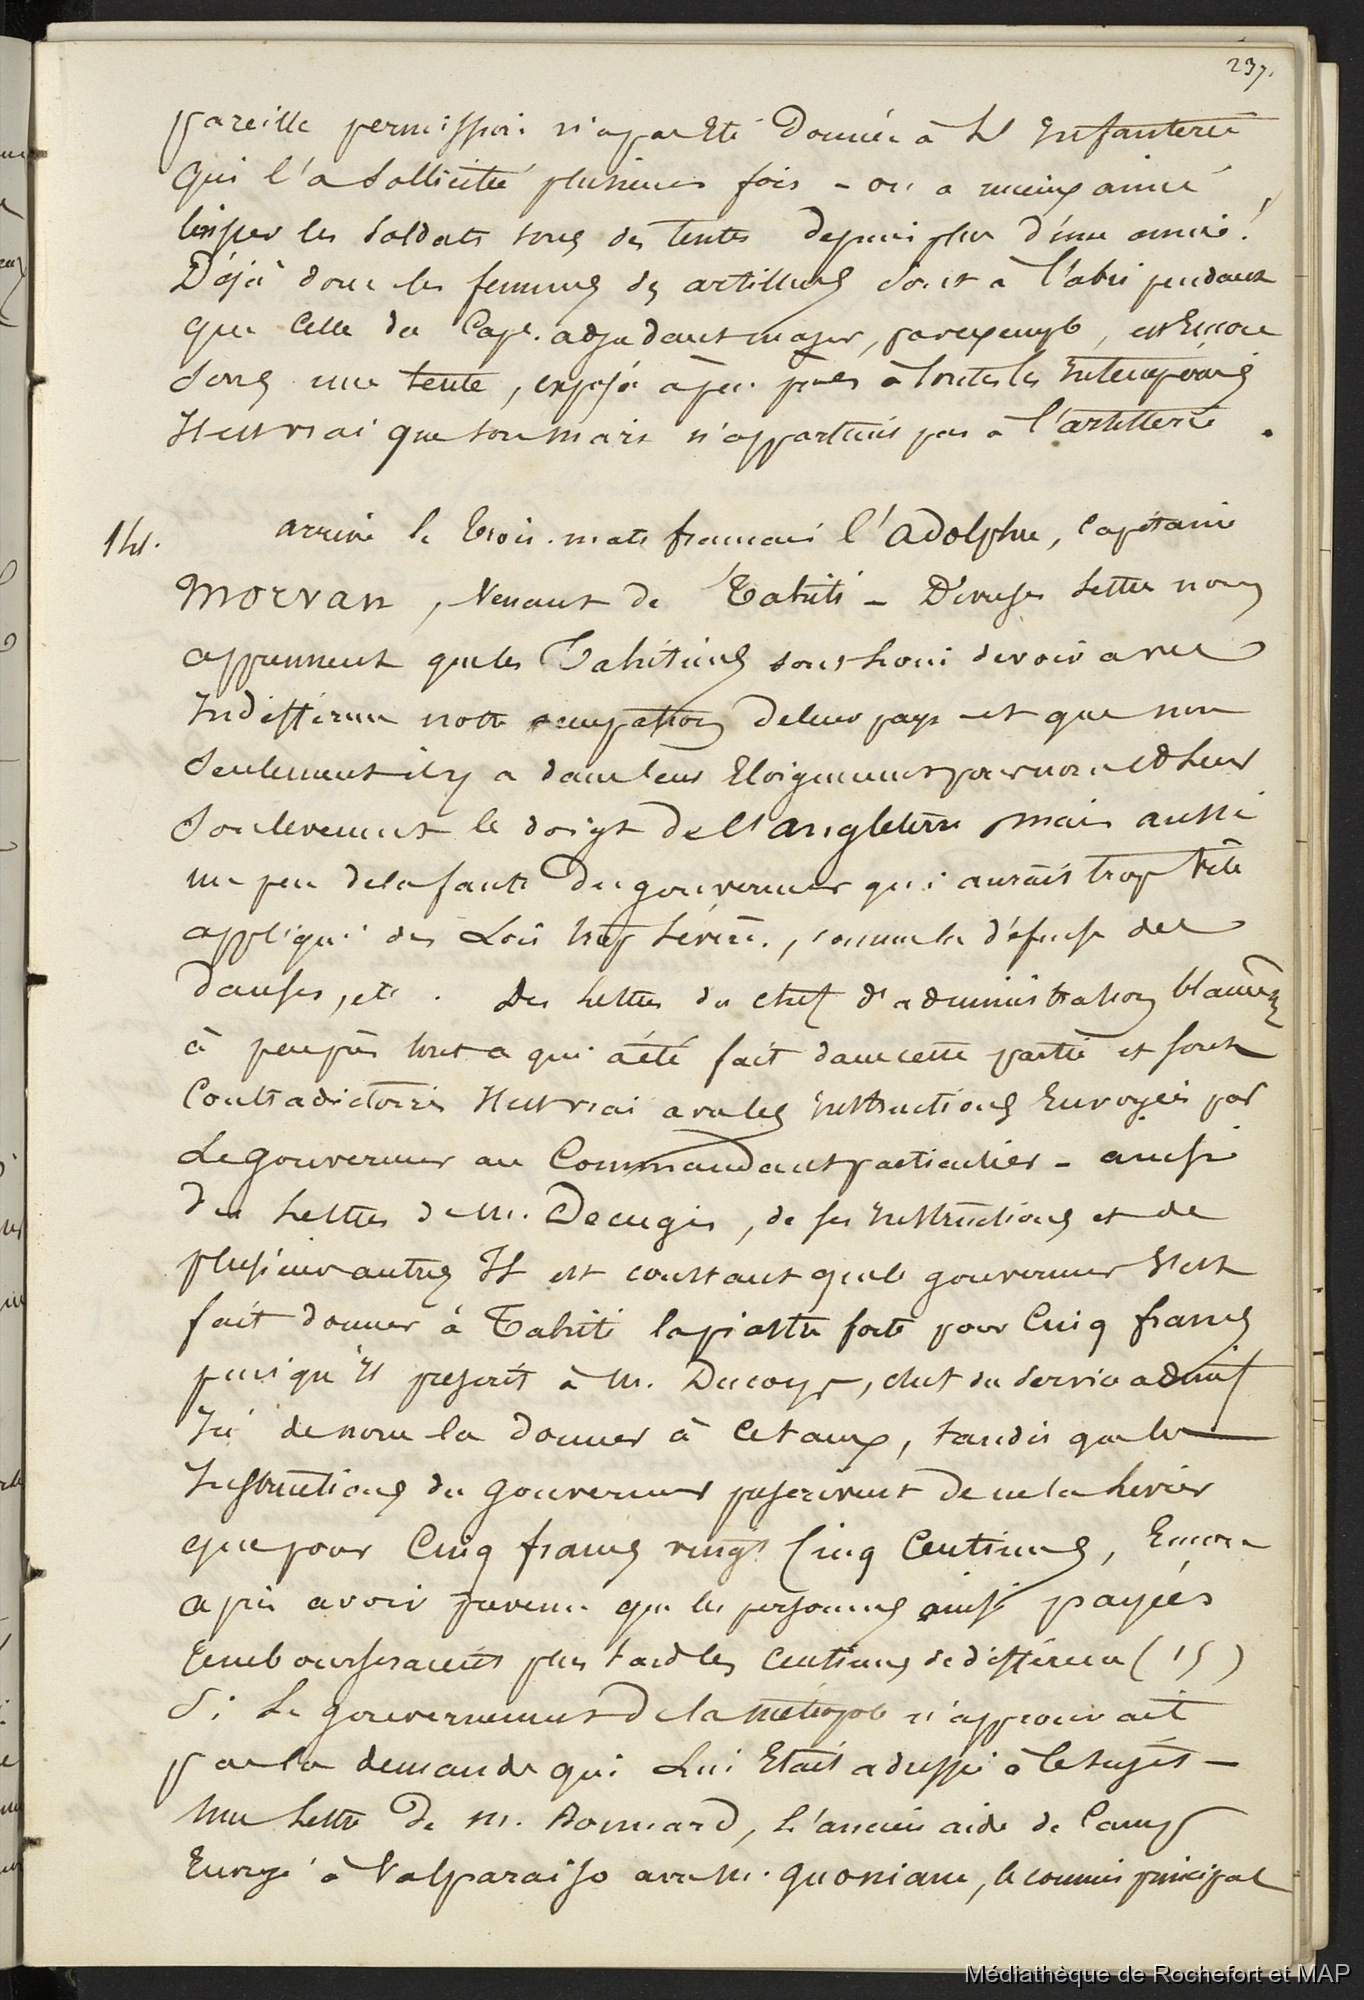 237.
pareille permission n'a pas Eté Donnée à L'Infanterie
qui l'a Sollicitée plusieurs fois – on a mieux aimé
laisser les Soldats sous des tentes depuis plus d'une année!
Déjà donc les femmes des artilleurs Sont à l'abri pendant
que Celle du Cape. adjudant major, par exemple, est Encore
Sous une tente, exposée à peu près à toutes les Intempéries
Il est vrai que son mari n'appartient pas à l'artillerie.
14.
arrivé le trois-mats français l'Adolphe, Capitaine
Morvan, Venant de Tahiti – Diverses Lettres nous
apprennent que les Tahitiens sont loin de voir avec
Indifférence notre occupation de leur pays et que non
Seulement il y a dans leur Eloignement pour nous et leur
Soulevement le doigt de l'Angleterre mais aussi
un peu de la faute du gouverneur qui aurait trop tôt
appliqué des Lois trop Sévères, comme la défense des
danses, etc. Des Lettres du chef d'administration blament
à peu près tout ce qui a été fait dans cette partie et sont
Contradictoires Il est vrai avec les Instructions Envoyées par
Le gouverneur au Commandant particulier – ainsi
des Lettres de M. Decugis, de ses Instructions et de
plusieurs autres Il est constant que le gouverneur
fait donner à Tahiti la piastre forte pour Cinq francs
puisqu'il prescrit à M. Ducoys, chef du Service admtif
Ici de nous la donner à Ce taux, tandis que les
Instructions du gouverneur prescrivent de ne la livrer
que pour Cinq francs vingt Cinq Centimes, Encore
après avoir prévenu que les personnes ainsi payées
rembourseraient plus tard les Centimes de différence (15)
Si Le gouvernement De la métropole n'approuvait
pas la demande qui Lui Etait adressée à Ce sujet –
Une Lettre De M. Bonnard, L'ancien aide de Camp
Envoyé à Valparaiso avec M. Quoniam, le commis principal
Médiathèque de Rochefort et MAP